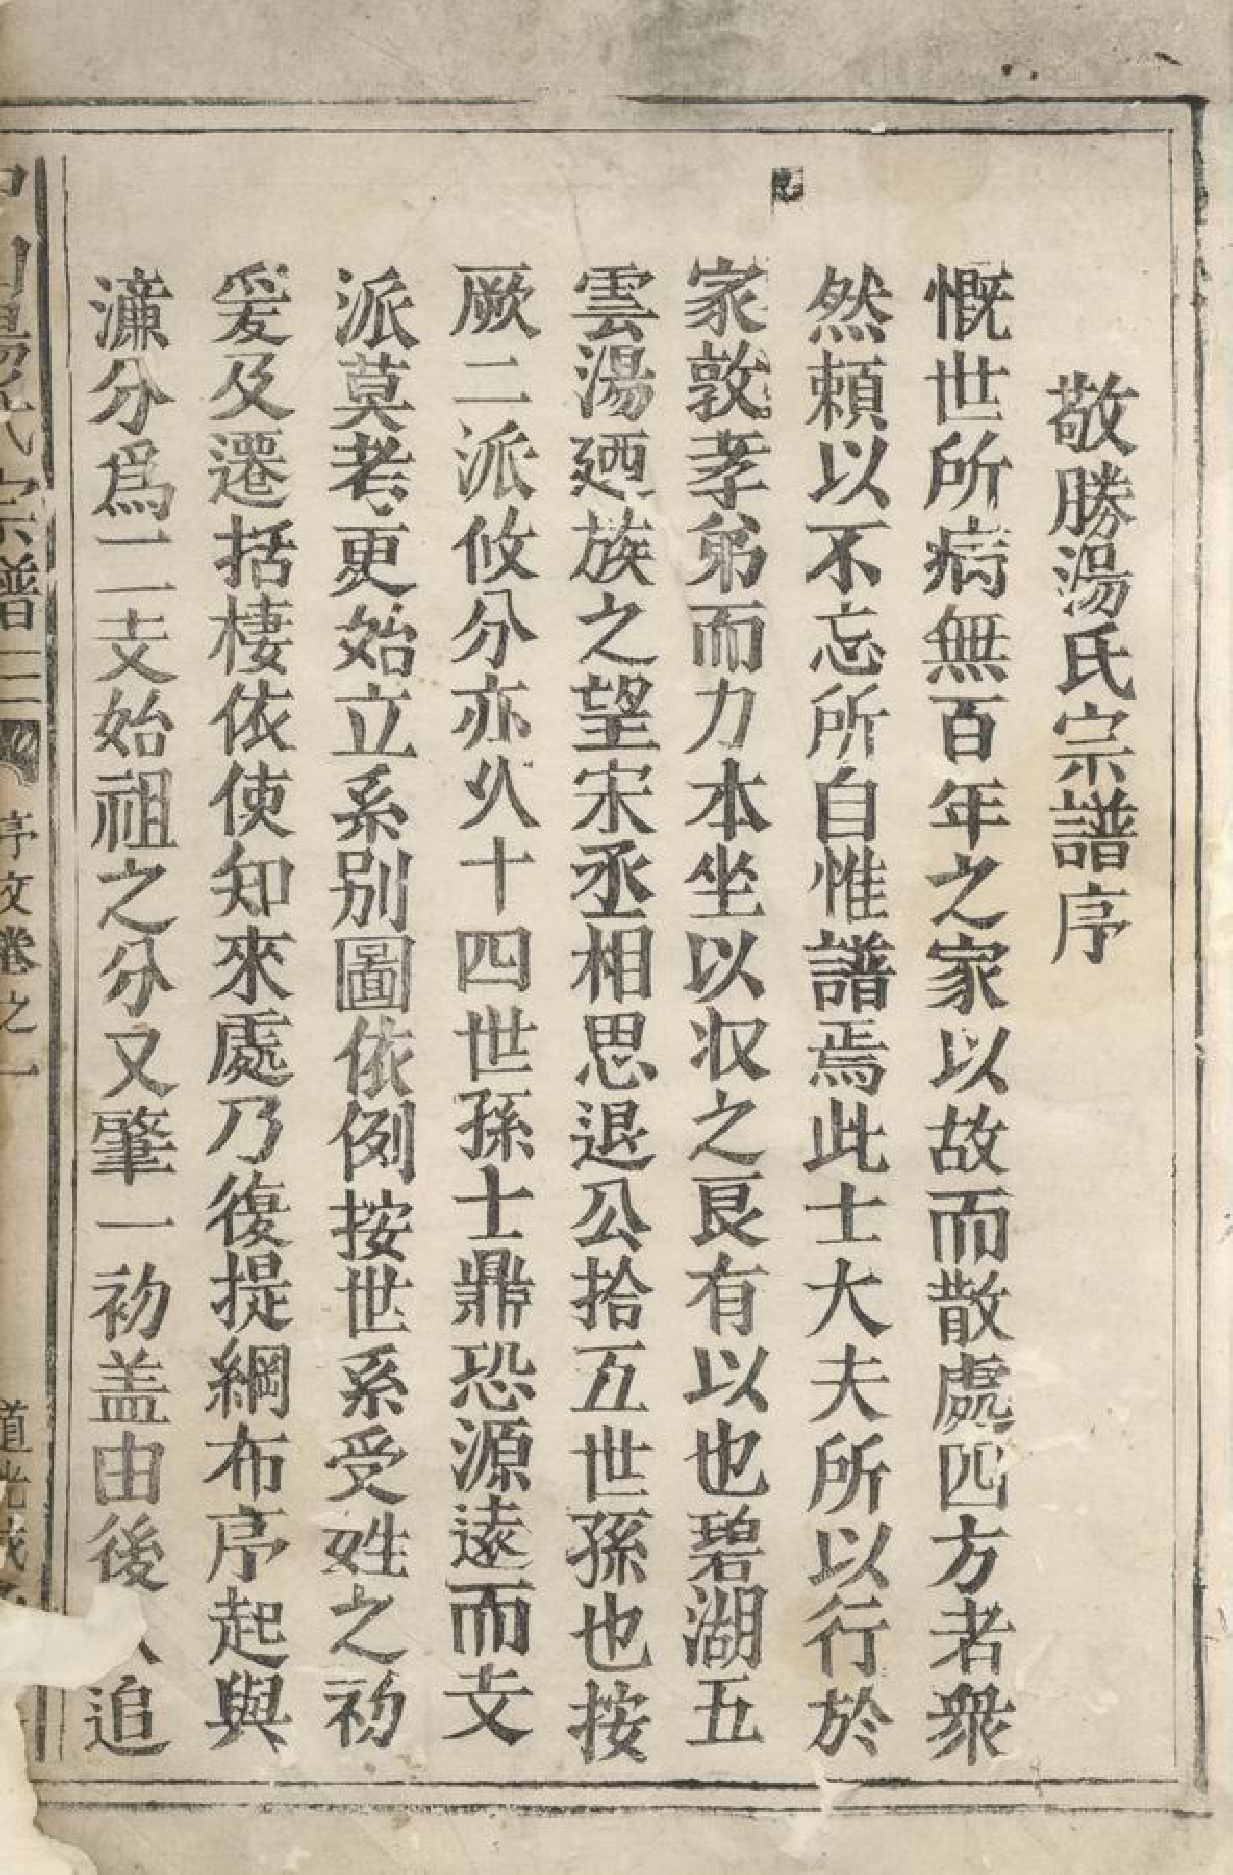 敬勝湯氏宗譜序
慨世所病無百年之家以故而散處四方者衆
然頼以不忘所自惟譜焉此士大夫所以行於
家敦孝弟而力本坐以収之良有以也碧湖五
雲湯廼族之望宋丞相思退公拾五世孫也按
厥二派攸分亦以十四世孫士鼎恐源遠而支
派莫考更始立系別圖依例按世系受姓之初
爰及遷括棲依使知來處乃復提綱布序起與
濂分為一二支始祖之分又肇一初盖由後人追
氏宗譜
序文卷之一
道光